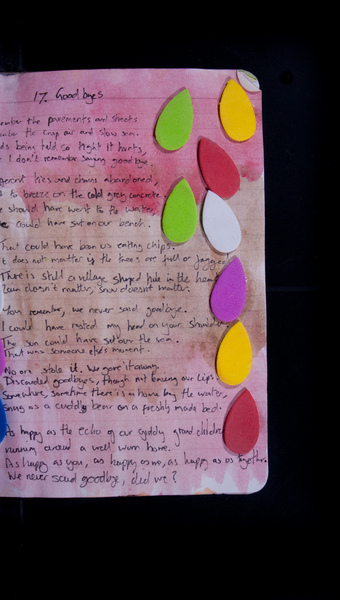 17. Goodbyes
ember the pavements and streets
ember the crisp air and slow sun.
ds being held so tight it hurts,
I don't remember saying goodbye.
fferent ties and chains abandoned,
to breeze on the cold grey concrete.
e should have went to the water,
e could have sat on our bench.
That could have been us eating chips.
t does not matter if the trees are full or jagged
There is still a village shaped hole in the
Rain doesn't matter, snow doesn't matter.
You remember, we never said goodbye.
I could have rested my head on your shoulder
The sun could have set over the sea.
That was someone else's moment.
No one stole it. We gave it away.
Discarded goodbyes, though not leaving our lips.
Somewhere, sometime there is a home by the water,
Snug as a cuddly bear on a freshly made bed.
As happy as the echo of our giddy grand children
running around a well worn home.
As happy as you, as happy as me, as happy as us together.
We never said goodbye, did we?